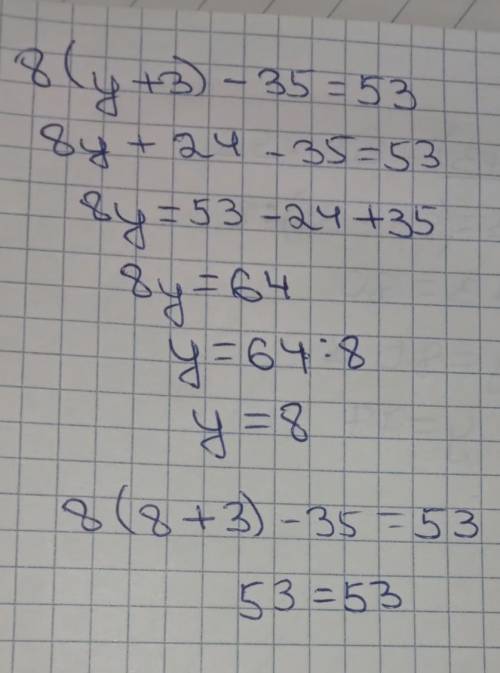 8(y+3) - 35 = 53
8y + 24 - 35 = 53
8y = 53 - 24 + 35
8y = 64
y = 64 : 8
y = 8
8(8+3) - 35 = 53
53 = 53